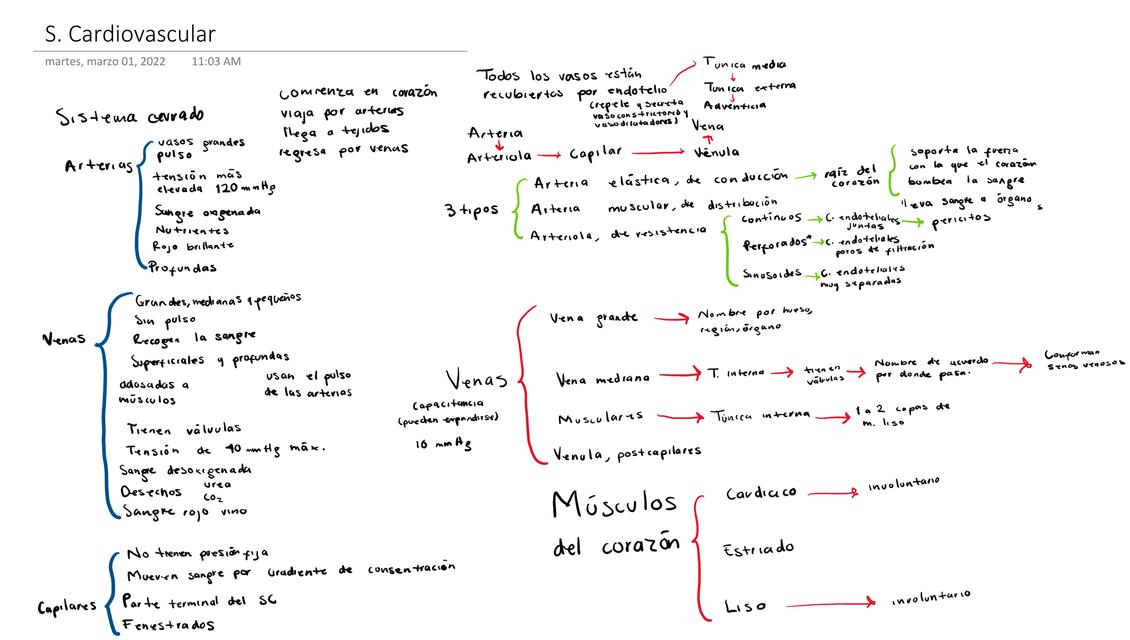 S. Cardiovascular
martes, marzo 01, 2022 11:03 AM
Sistema cerrado
Comienza en corazón
viaja por arterias
llega a tejidos
regresa por venas
Arterias
vasos grandes
pulso
tensión más
elevada 120 mmHg
Sangre oxigenada
Nutrientes
Rojo brillante
Profundas
Venas
Grandes, medianas y pequeños
Sin pulso
Recogen la sangre
Superficiales y profundas
adosados a
músculos
usan el pulso
de las arterias
Tienen válvulas
Tensión de 40 mmHg máx.
Sangre desoxigenada
Desechos urea
CO2
Sangre rojo vino
Capilares
No tienen presión fija
Mueven sangre por Gradiente de consentración
Parte terminal del SC
Fenestrados
Todos los vasos están
recubiertos por endotelio
(repele y secreta
vasoconstrictores y
vasodilatadores)
Tunica media
Tunica externa
Adventicia
Arteria
Arteriola → Capilar → Vénula
Vena
3 tipos
Arteria elástica, de conducción → raíz del
corazón
soporta la fuerza
con la que el corazón
bombea la sangre
Arteria muscular, de distribución
lleva sangre a órganos
Arteriola, de resistencia
continuos → C. endoteliales
juntas → pericitos
Perforados* → C. endoteliales
poros de filtración
Sinusoides → C. endoteliales
muy separadas
Venas
capacitancia
(pueden expandirse)
10 mmHg
Vena grande → Nombre por hueso,
región, órgano
Vena mediana → T. interna → tienen
válvulas → Nombre de acuerdo
por donde pasa. → Conforman
senos venosos
Musculares → Túnica interna → 1 a 2 capas de
m. liso
Venula, postcapilares
Músculos
del corazón
Cardicico → involuntario
Estriado
Liso → involuntario